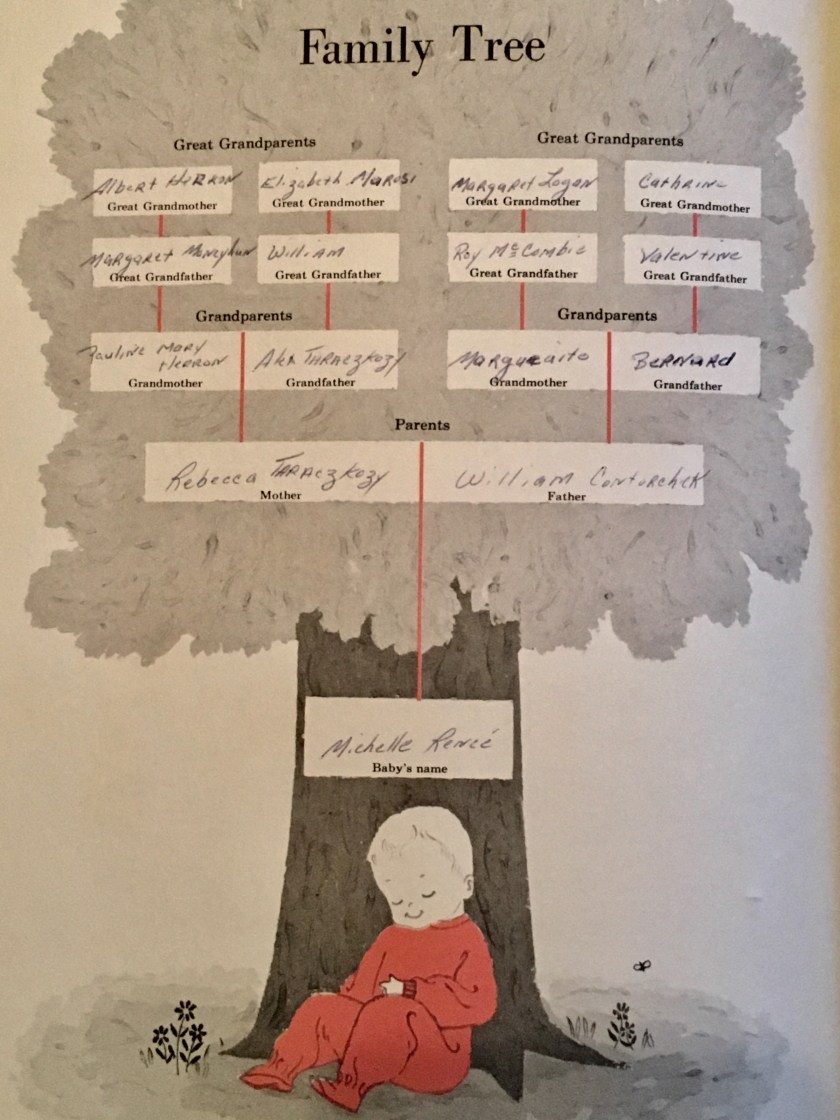 Family Tree
Great Grandparents Great Grandparents
Albert Herron Elizabeth Marosi Margaret Logan Cathrine
Great Grandmother Great Grandmother Great Grandmother Great Grandmother
Margaret Moneyhun William Roy McCombie Valentine
Great Grandfather Great Grandfather Great Grandfather Great Grandfather
Grandparents Grandparents
Pauline Mary
Herron Alex Taraczkozy Marguearite Bernard
Grandmother Grandfather Grandmother Grandfather
Parents
Rebecca Taraczkozy William Contorchick
Mother Father
Michelle Reneé
Baby's name